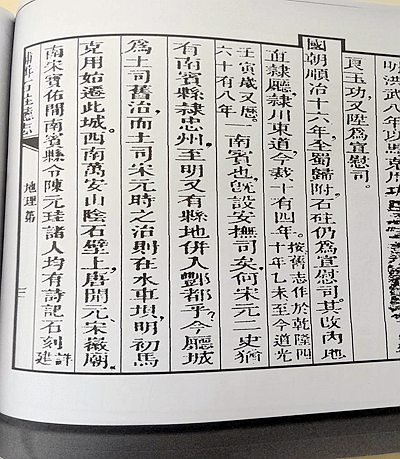 明洪武八年
良玉功又陞為宣慰司。
國朝順治十六年,全蜀歸附,石砫仍為宣慰司。其改內地
直隸廳,隸川東道,今裁十有四年。按舊志作於乾隆四十年乙未至今道光
壬寅歲又歷六十有八年。南賓也,既設安撫司矣,何宋元二史猶
有南賓縣隸忠州,至明又有縣地併入酆都乎?今廳城
為土司舊治,而土司宋元時之治則在水車壩,明初馬
克用始遷此城。西南萬安山陰石壁上,唐開元、宋薇廟、
南宋寶佑閒南賓縣令陳元珪諸人均有詩記石刻詳建
地理第
三